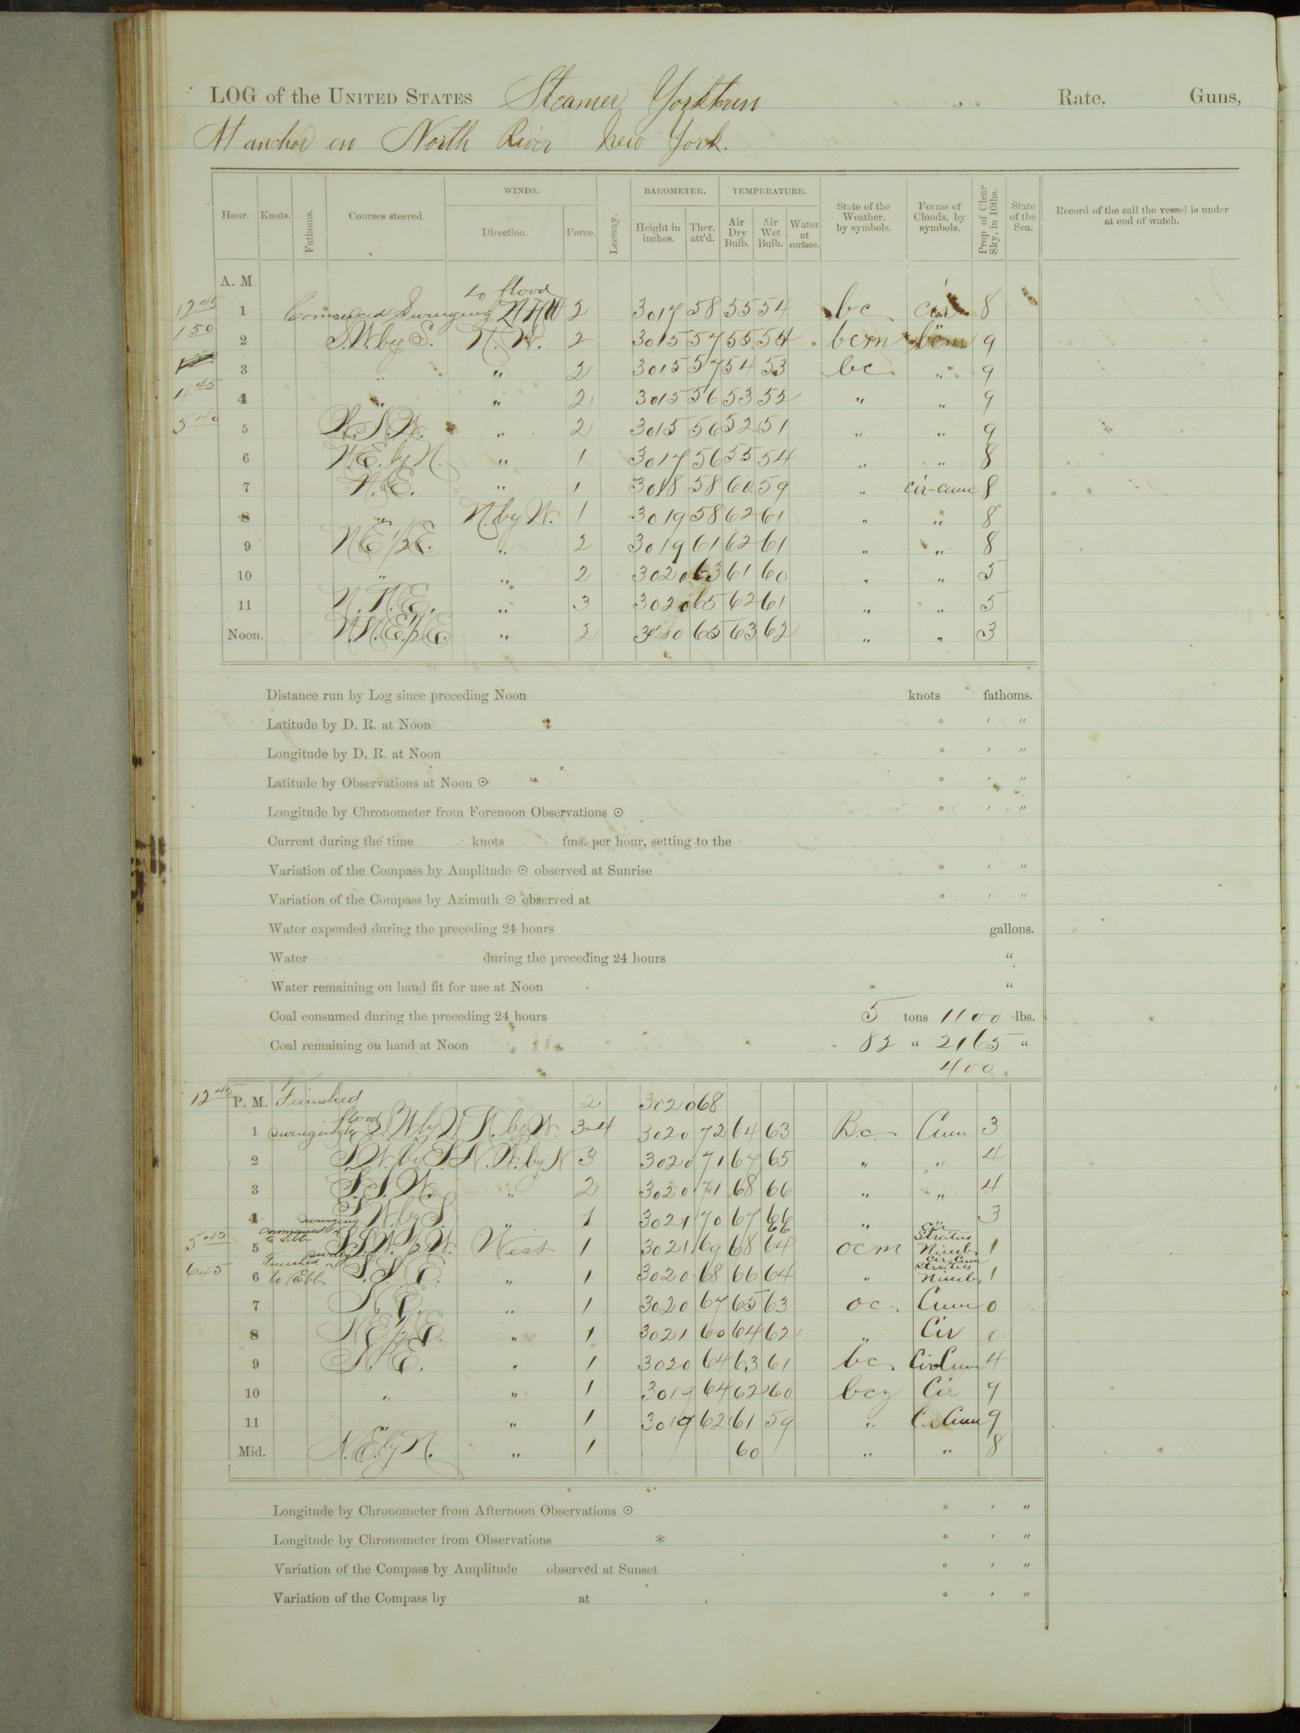 LOG of the UNITED STATES Steamer Yorktown Rate, Guns,
At anchor in North River New York.
WINDS. BAROMETER. TEMPERATURE.
Hour. Knots. Fathoms. Courses steered. Direction. Force. Leeway. Height in inches. Ther. att'd. Air Dry Bulb. Air Wet Bulb. Water at surface. State of the Weather, by symbols. Forms of Clouds, by symbols. Prop. of Clear Sky, in 10ths. State of the Sea. Record of the sail the vessel is under at end of watch.
A. M.
to flood
12 45 1 Commenced Swinging 2 3017 58 55 54 bc cir 8
1 50 2 S.W. by S. N. W. 2 3015 57 55 54 bcm 9
3 " " 2 3015 57 54 53 bc " 9
4 45 4 " " 2 3015 56 53 52 " " 9
5 40 5 " 2 3015 56 52 51 " " 9
6 N.E. by N. " 1 3017 56 55 54 " " 8
7 N.E. " 1 3018 58 60 59 " cir-cum 8
8 " N. by W. 1 3019 58 62 61 " " 8
9 N.E. 1/2 E. " 2 3019 61 62 61 " " 8
10 " " 2 3020 63 61 60 " " 5
11 N. N. E. " 3 3020 65 62 61 " " 5
Noon. N.N.E. 1/2 E " 2 65 63 62 " " 3
Distance run by Log since preceding Noon knots fathoms.
Latitude by D. R. at Noon ° ′ ″
Longitude by D. R. at Noon ° ′ ″
Latitude by Observations at Noon ☉ ° ′ ″
Longitude by Chronometer from Forenoon Observations ☉ ° ′ ″
Current during the time knots fms. per hour, setting to the
Variation of the Compass by Amplitude ☉ observed at Sunrise ° ′ ″
Variation of the Compass by Azimuth ☉ observed at ° ′ ″
Water expended during the preceding 24 hours gallons.
Water during the preceding 24 hours "
Water remaining on hand fit for use at Noon "
Coal consumed during the preceding 24 hours 5 tons 1100 lbs.
Coal remaining on hand at Noon 82 " 2165 "
400
12 45 P. M. Finished 2 3020 68
flood
1 swinging to S. W. by W N. by W. 3-4 3020 72 64 63 B.c. Cum 3
2 S.W. by S. N. W. by N 3 3020 71 67 65 " " 4
3 S. S. W. " 2 3020 71 68 66 " " 4
4 S.W. by S. " 1 3021 70 67 66 " 3
swinging
Commenced
to ebb
5 45 5 S.S.W. 1/2 W. West 1 3021 69 68 64 ocm Stratus Nimb. 1
Finished
6 45 6 to Ebb S. S. E. " 1 3020 68 66 64 " Cir Cum Stratus Nimb. 1
7 N. E. " 1 3020 67 65 63 oc. Cum 0
8 N.E. 1/2 E. " 1 3021 60 64 62 " Cir 0
9 N. E. " 1 3020 64 63 61 bc. Cir Cum 4
10 " " 1 3019 64 62 60 bcz Cir 9
11 " " 1 3019 62 61 59 " Cir Cum 9
Mid. N. E. by N. " 1 60 " " 8
Longitude by Chronometer from Afternoon Observations ☉ ° ′ ″
Longitude by Chronometer from Observations * ° ′ ″
Variation of the Compass by Amplitude observed at Sunset ° ′ ″
Variation of the Compass by at ° ′ ″